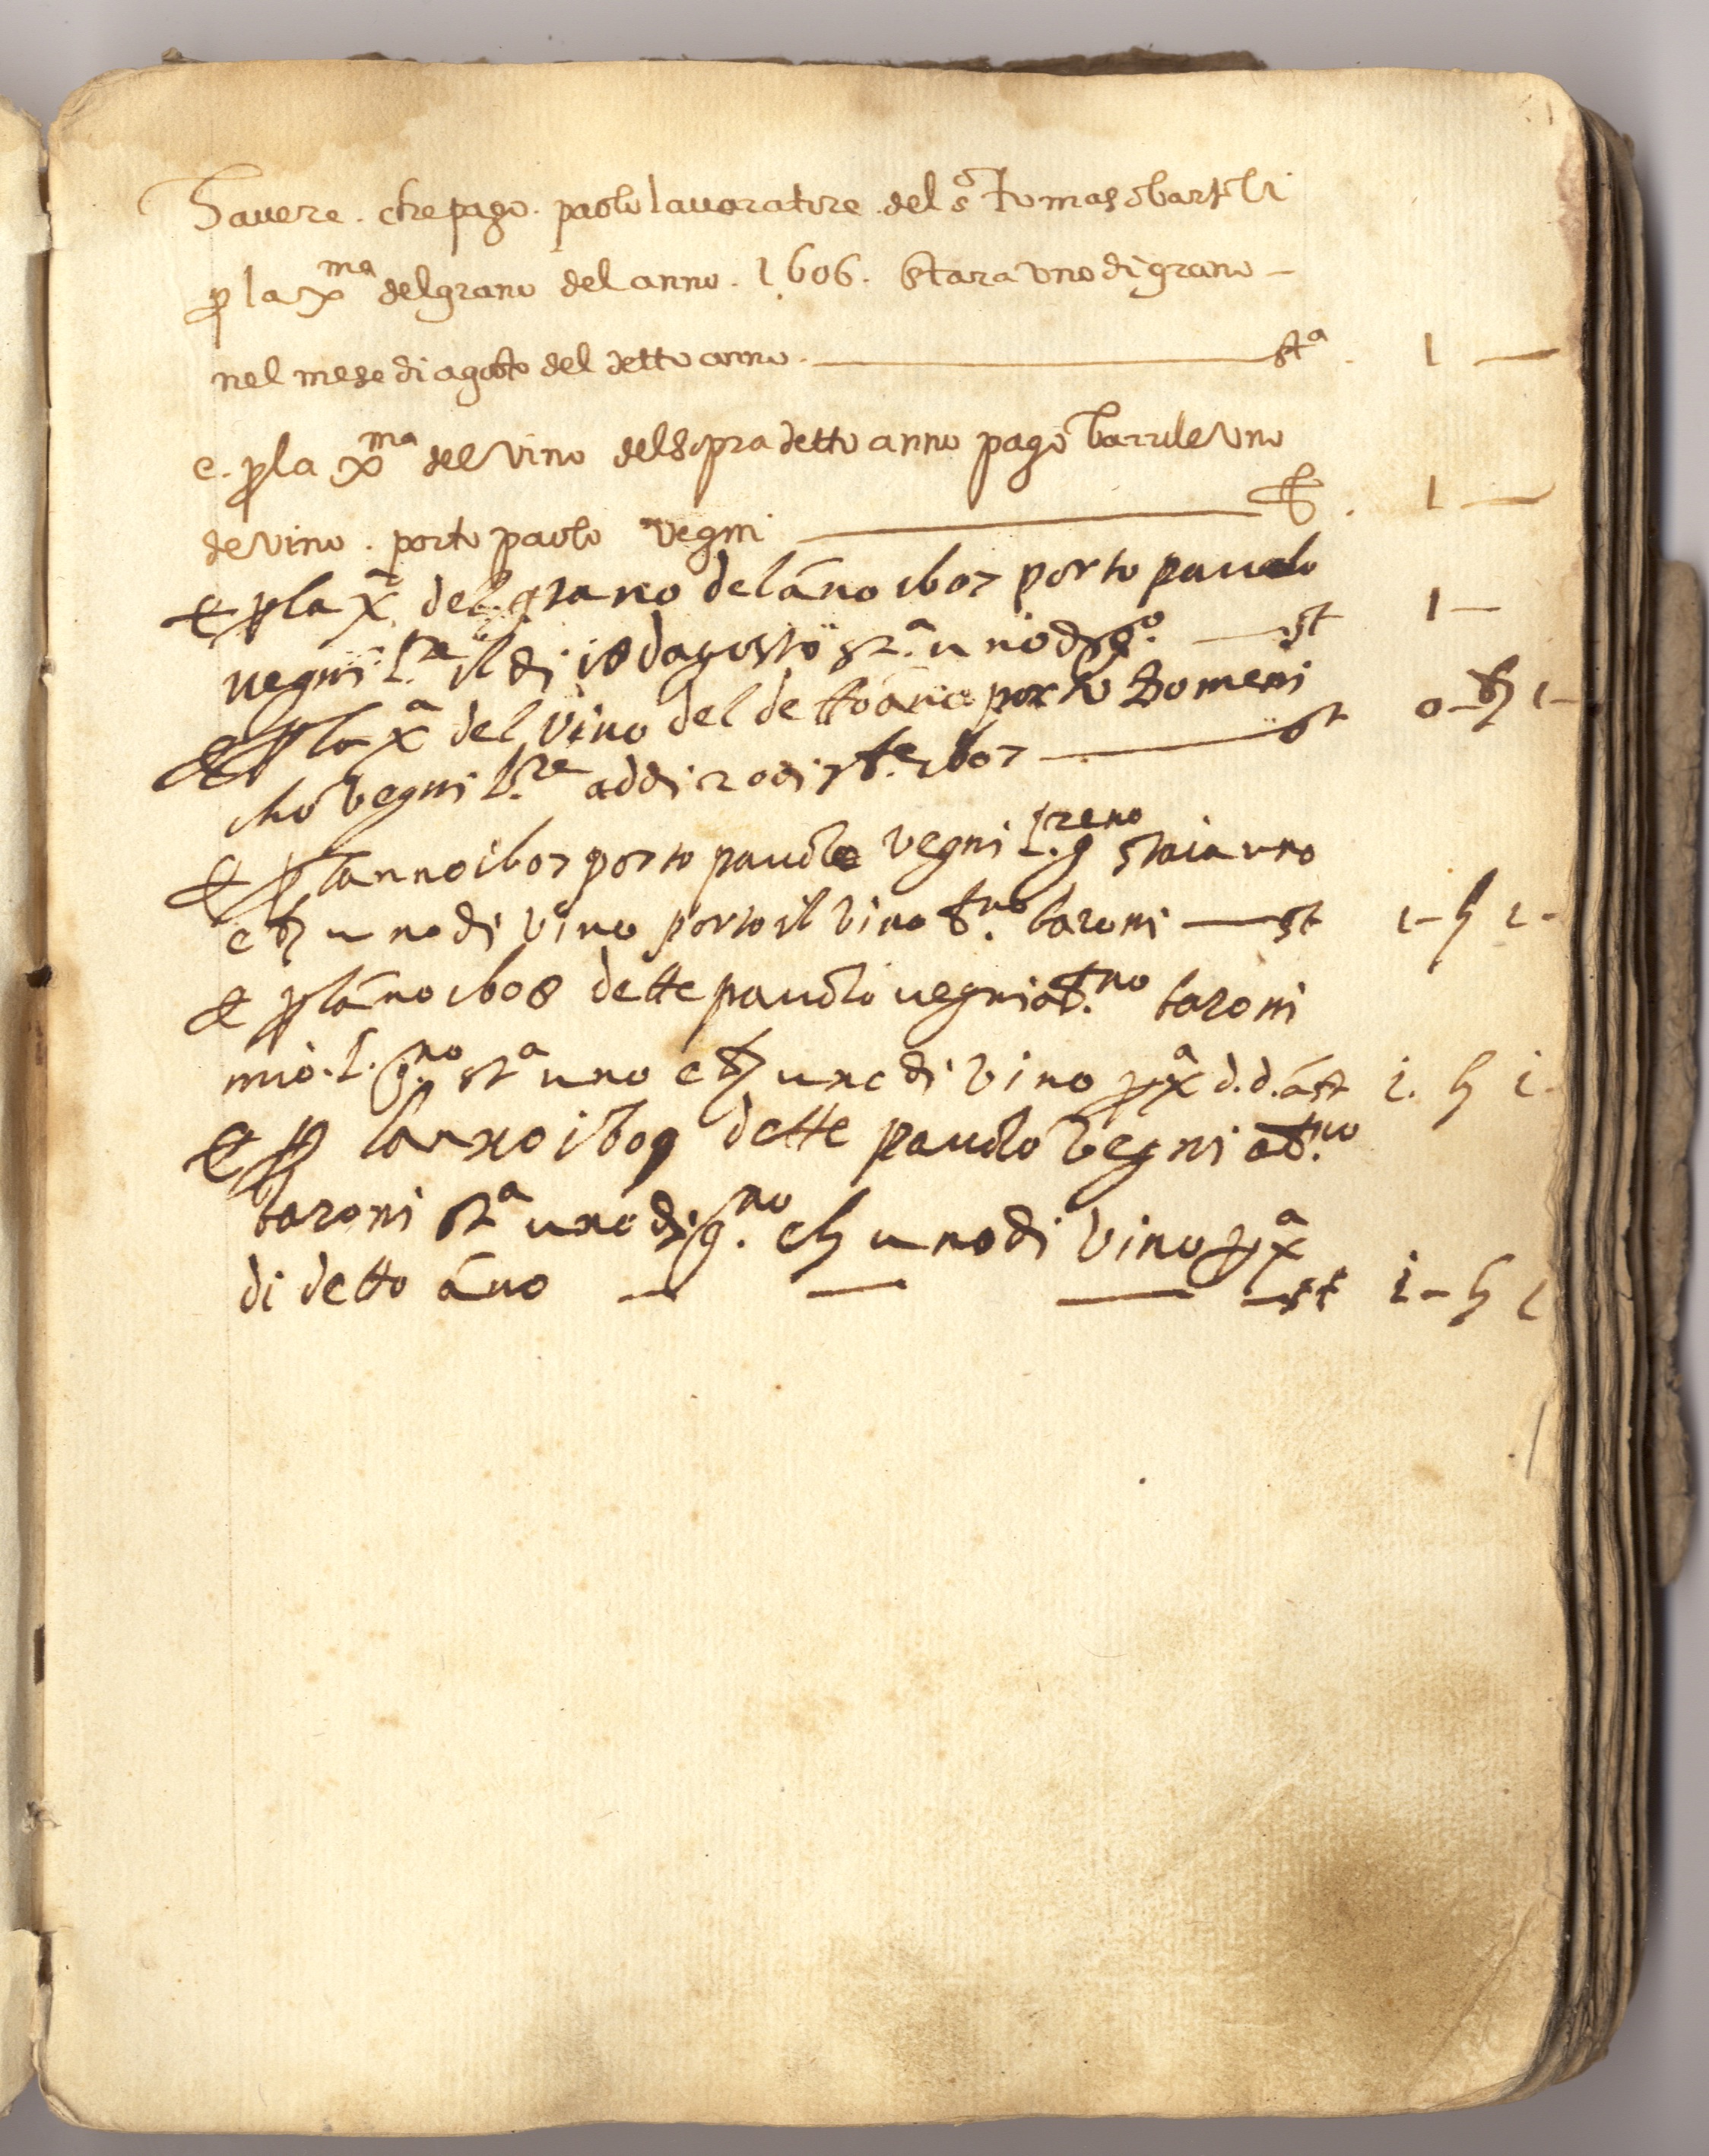 Havere . che pago . paolo lavoratore . del S. Tomaso bartoli
p la Xma del grano del anno . 1606 . stara uno di grano —
nel mese di agosto del detto anno . — sta . 1 —
e . p la Xma del vino del sopra detto anno pago barrile uno
de vino . porto paolo vegni — . 1 —
E p la Xa del grano del āno 1607 porto pauolo
vegni l.re il di 18 dagosto sta uno di g.o — st 1 —
E p la Xa del vino del detto āno porto Domeni
cho vegni l.re addi 20 di 1607 — st 0 — b 1 —
E p lanno 1607 porto pauolo vegni staia uno
e b uno di vino porto il vino baroni — st 1 — b 1 -
E p lāno 1608 dette pauolo vegni a b.no baroni
mio . l. g.no sta uno e b uno di vino p Xa d. d. ā st 1 . b 1 -
E p lanno 1609 dette pauolo vegni a b.no
baroni sta uno di g.no e b uno di vino p Xa
di detto āno — — — st 1 — b 1